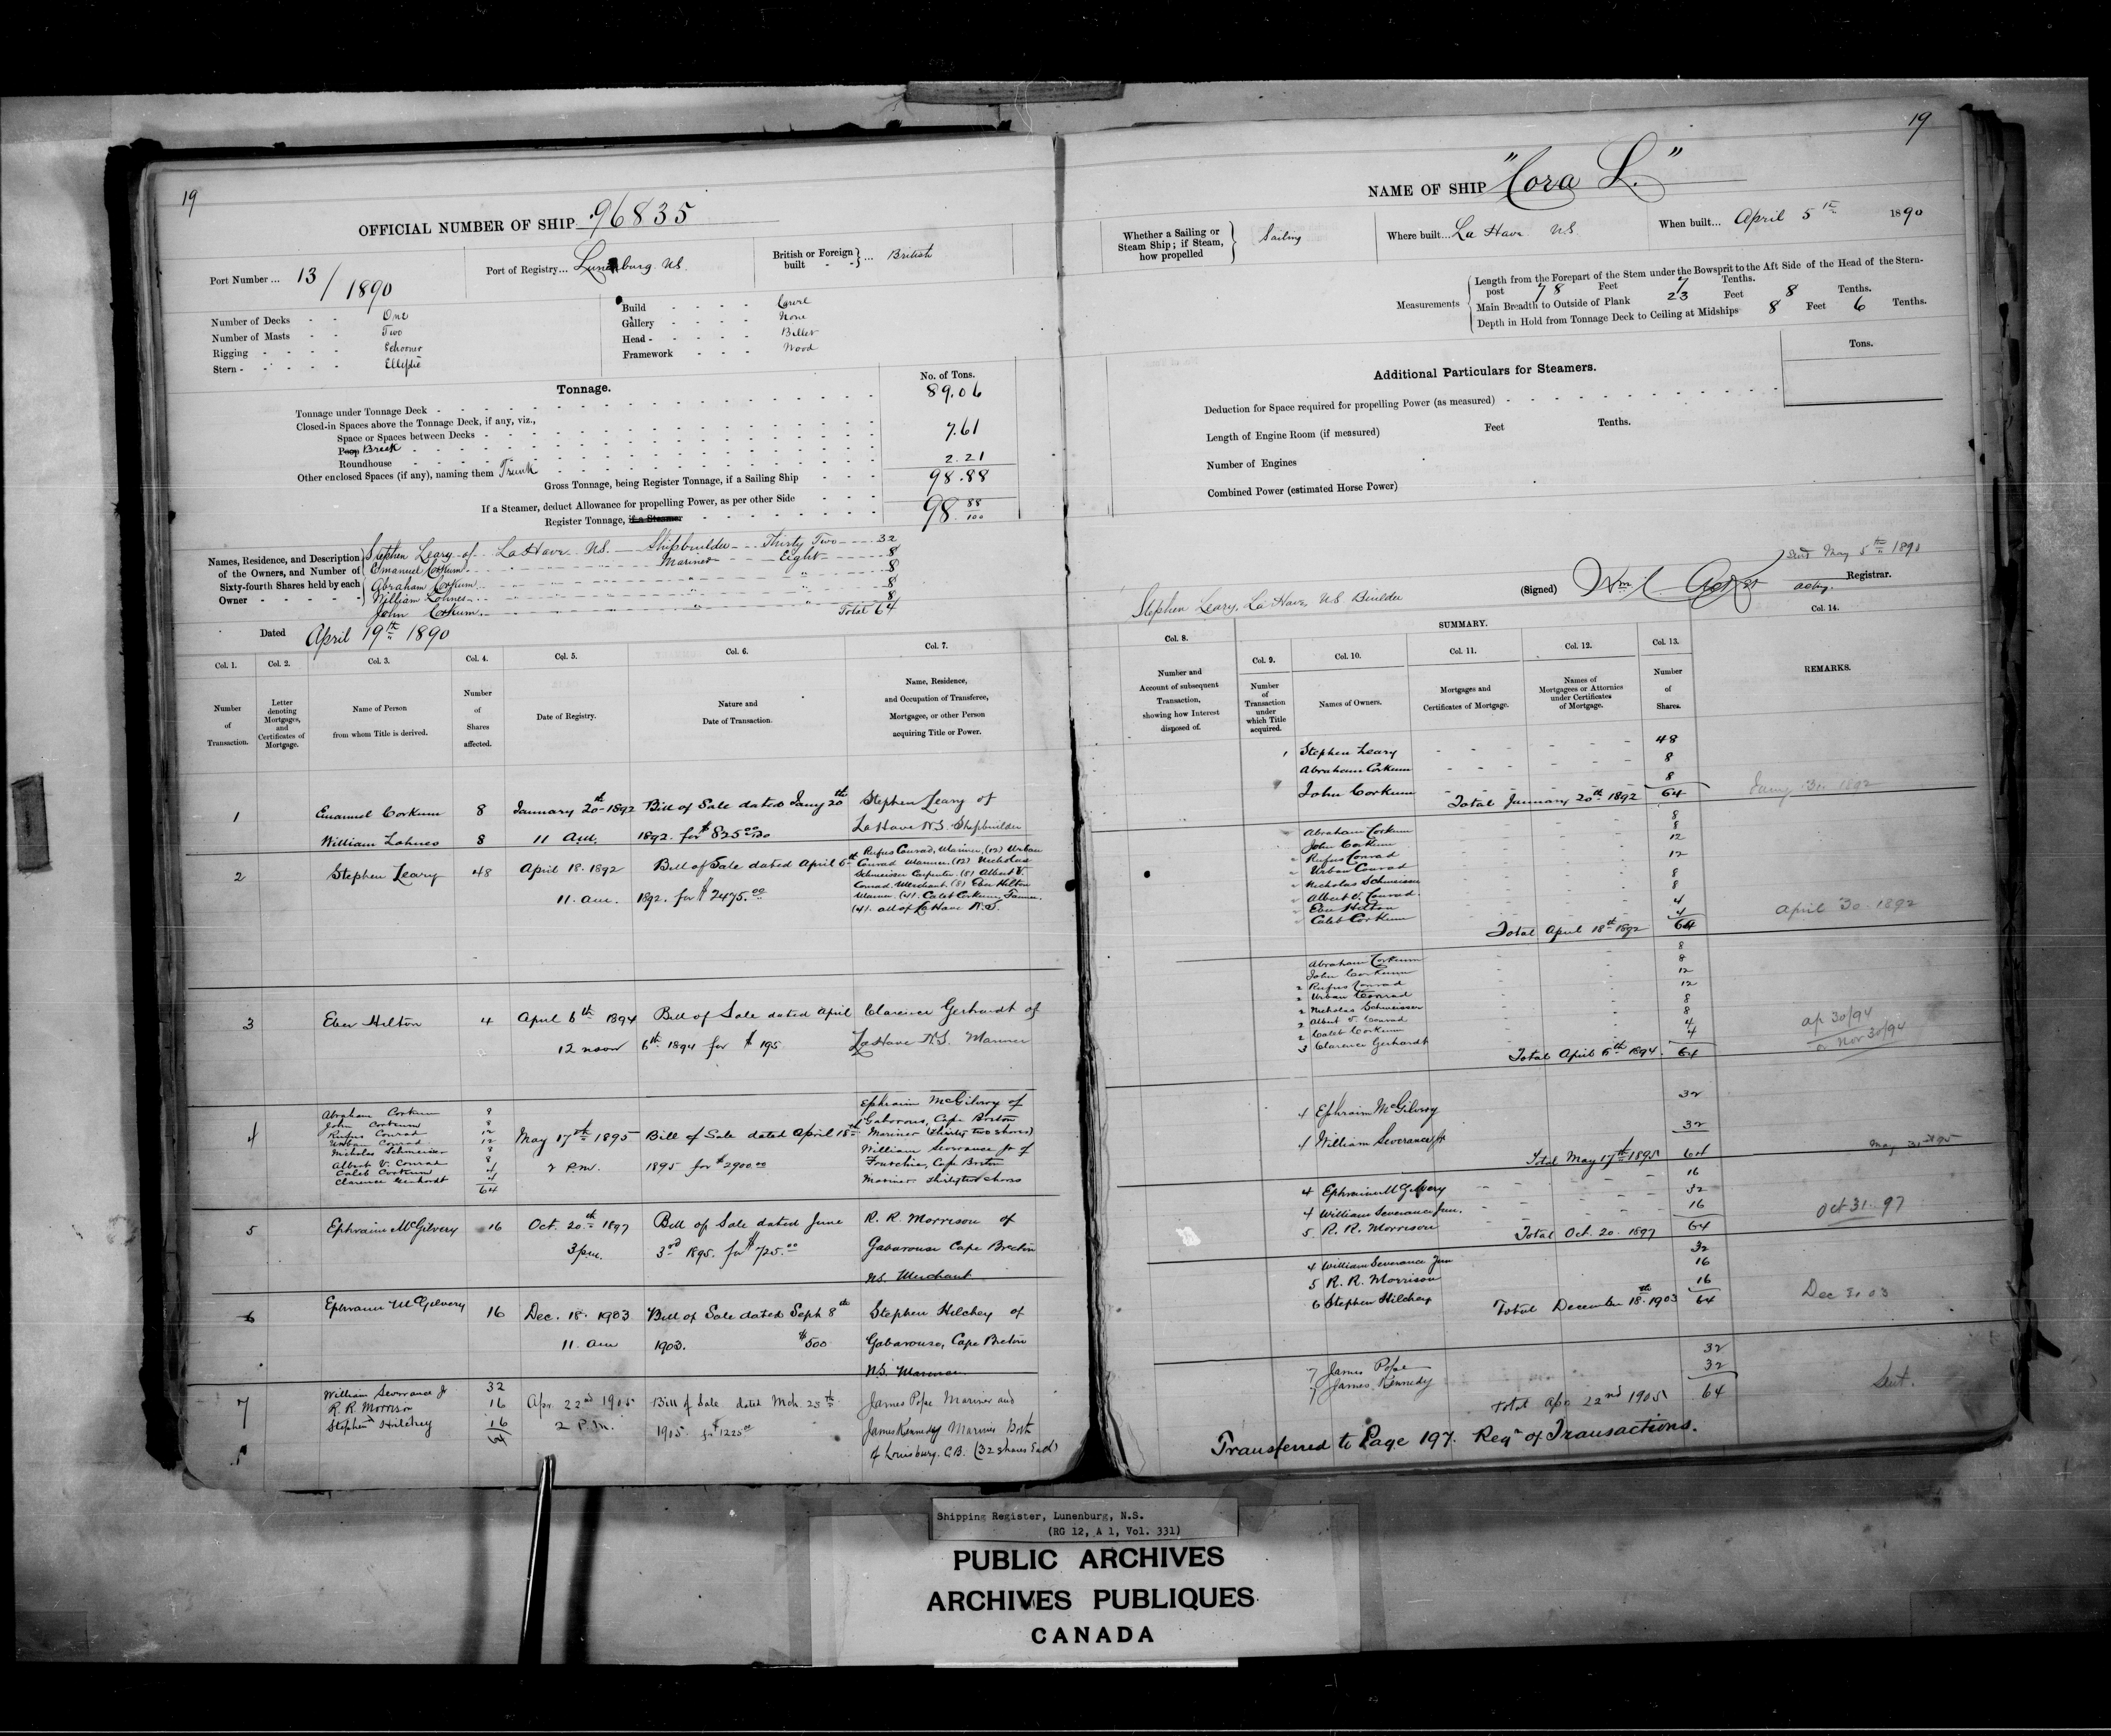 19
OFFICIAL NUMBER OF SHIP 96835
Port Number ... 13/1890
Port of Registry... Lunenburg. N.S.
British or Foreign built - - } ... British
Number of Decks - - One
Number of Masts - - Two
Rigging - - - - Schooner
Stern - - - - - Elliptic
Build - - - - Carvel
Gallery - - - - None
Head - - - - - Billet
Framework - - - Wood
Tonnage.
No. of Tons.
Tonnage under Tonnage Deck - 89.06
Closed-in Spaces above the Tonnage Deck, if any, viz.,
Space or Spaces between Decks -
Poop Break - 7.61
Roundhouse -
Other enclosed Spaces (if any), naming them Trunk 2.21
Gross Tonnage, being Register Tonnage, if a Sailing Ship 98.88
If a Steamer, deduct Allowance for propelling Power, as per other Side
Register Tonnage, if a Steamer 98 88/100
Names, Residence, and Description of the Owners, and Number of Sixty-fourth Shares held by each Owner
Stephen Leary of La Have N.S. Shipbuilder Thirty Two 32
Emanuel Corkum " Mariner Eight 8
Abraham Corkum " " " 8
William Lohnes " " " 8
John Corkum " " " 8
Total 64
Dated April 19th 1890
Col. 1. Col. 2. Col. 3. Col. 4. Col. 5. Col. 6. Col. 7.
Number of Transaction.
Letter denoting Mortgages, and Certificates of Mortgage.
Name of Person from whom Title is derived.
Number of Shares affected.
Date of Registry.
Nature and Date of Transaction.
Name, Residence, and Occupation of Transferee, Mortgagee, or other Person acquiring Title or Power.
1 Emanuel Corkum 8 January 20th 1892 Bill of Sale dated Jany 20th Stephen Leary of
William Lohnes 8 11 a.m. 1892. for $825.00 La Have N.S. Shipbuilder
2 Stephen Leary 48 April 18. 1892 Bill of Sale dated April 6th
11. am. 1892. for $2475.00
Rufus Conrad, Mariner, (12) Urban
Conrad Mariner. (12) Nicholas
Schmeisser Carpenter. (8) Albert V.
Conrad. Merchant. (8) Eber Hilton
Mariner. (4). Caleb Corkum, Farmer.
(4). all of La Have N.S.
3 Eber Hilton 4 April 6th 1894 Bill of Sale dated April Clarence Gerhardt of
12 noon 6th 1894 for $195 La Have N.S. Mariner
4
Abraham Corkum 8
John Corkum 8
Rufus Conrad 12
Urban Conrad 12
Nicholas Schmeisser 8
Albert V. Conrad 8
Caleb Corkum 4
Clarence Gerhardt 4
64
May 17th 1895 Bill of Sale dated April 18th
2 P.M. 1895 for $2900.00
Ephraim McGilvery of
Gabarous, Cape Breton
Mariner (thirty two shares)
William Severance Jr of
Fourchie, Cape Breton
Mariner thirty two shares
5 Ephraim McGilvery 16 Oct. 20th 1897 Bill of Sale dated June R. R. Morrison of
3 p.m. 3rd 1895. for $725.00 Gabarouse Cape Breton
N.S. Merchant
6 Ephraim McGilvery 16 Dec. 18. 1903 Bill of Sale dated Sept 8th Stephen Hilchey of
11. am 1903. $500 Gabarouse, Cape Breton
N.S. Mariner
7 William Severance Jr 32
R. R. Morrison 16
Stephen Hilchey 16
64
Apr. 22nd 1905 Bill of Sale dated Mch. 25th James Pope Mariner and
2 P.M. 1905 for $1225.00 James Kennedy Mariner Both
of Louisburg. C.B. (32 shares Each)
19
NAME OF SHIP "Cora L."
Whether a Sailing or Steam Ship; if Steam, how propelled } Sailing
Where built... La Have N.S.
When built... April 5th 1890
Measurements
Length from the Forepart of the Stem under the Bowsprit to the Aft Side of the Head of the Stern-
post 78 Feet 7 Tenths.
Main Breadth to Outside of Plank 23 Feet 8 Tenths.
Depth in Hold from Tonnage Deck to Ceiling at Midships 8 Feet 6 Tenths.
Additional Particulars for Steamers.
Tons.
Deduction for Space required for propelling Power (as measured)
Length of Engine Room (if measured) Feet Tenths.
Number of Engines
Combined Power (estimated Horse Power)
Sent May 5th 1890
Stephen Leary, La Have, N.S. Builder
(Signed) Wm
acting. Registrar.
Col. 8. SUMMARY. Col. 14.
Col. 9. Col. 10. Col. 11. Col. 12. Col. 13.
Number and Account of subsequent Transaction, showing how Interest disposed of.
Number of Transaction under which Title acquired.
Names of Owners.
Mortgages and Certificates of Mortgage.
Names of Mortgagees or Attornies under Certificates of Mortgage.
Number of Shares.
REMARKS.
1 Stephen Leary 48
Abraham Corkum 8
John Corkum 8
Total January 20th 1892 64 Jany 30. 1892
Abraham Corkum 8
John Corkum 8
Rufus Conrad 12
Urban Conrad 12
Nicholas Schmeisser 8
Albert V. Conrad 8
Eber Hilton 4
Caleb Corkum 4
Total April 18th 1892 64 April 30. 1892
Abraham Corkum 8
John Corkum 8
2 Rufus Conrad 12
2 Urban Conrad 12
2 Nicholas Schmeisser 8
2 Albert V. Conrad 8
2 Caleb Corkum 4
3 Clarence Gerhardt 4
Total April 6th 1894. 64
ap 30/94
Nov 30/94
4 Ephraim McGilvery 32
4 William Severance Jr 32
Total May 17th 1895 64 May 31st 95
4 Ephraim McGilvery 16
4 William Severance Jun. 32
5 R. R. Morrison 16
Total Oct. 20. 1897 64 Oct 31. 97
4 William Severance Jun 32
5 R. R. Morrison 16
6 Stephen Hilchey 16
Total December 18th 1903 64 Dec 31 03
7 James Pope 32
7 James Kennedy 32
Total Apr 22nd 1905 64 Sent.
Transferred to Page 197. Regr of Transactions.
Shipping Register, Lunenburg, N.S.
(RG 12, A 1, Vol. 331)
PUBLIC ARCHIVES
ARCHIVES PUBLIQUES
CANADA